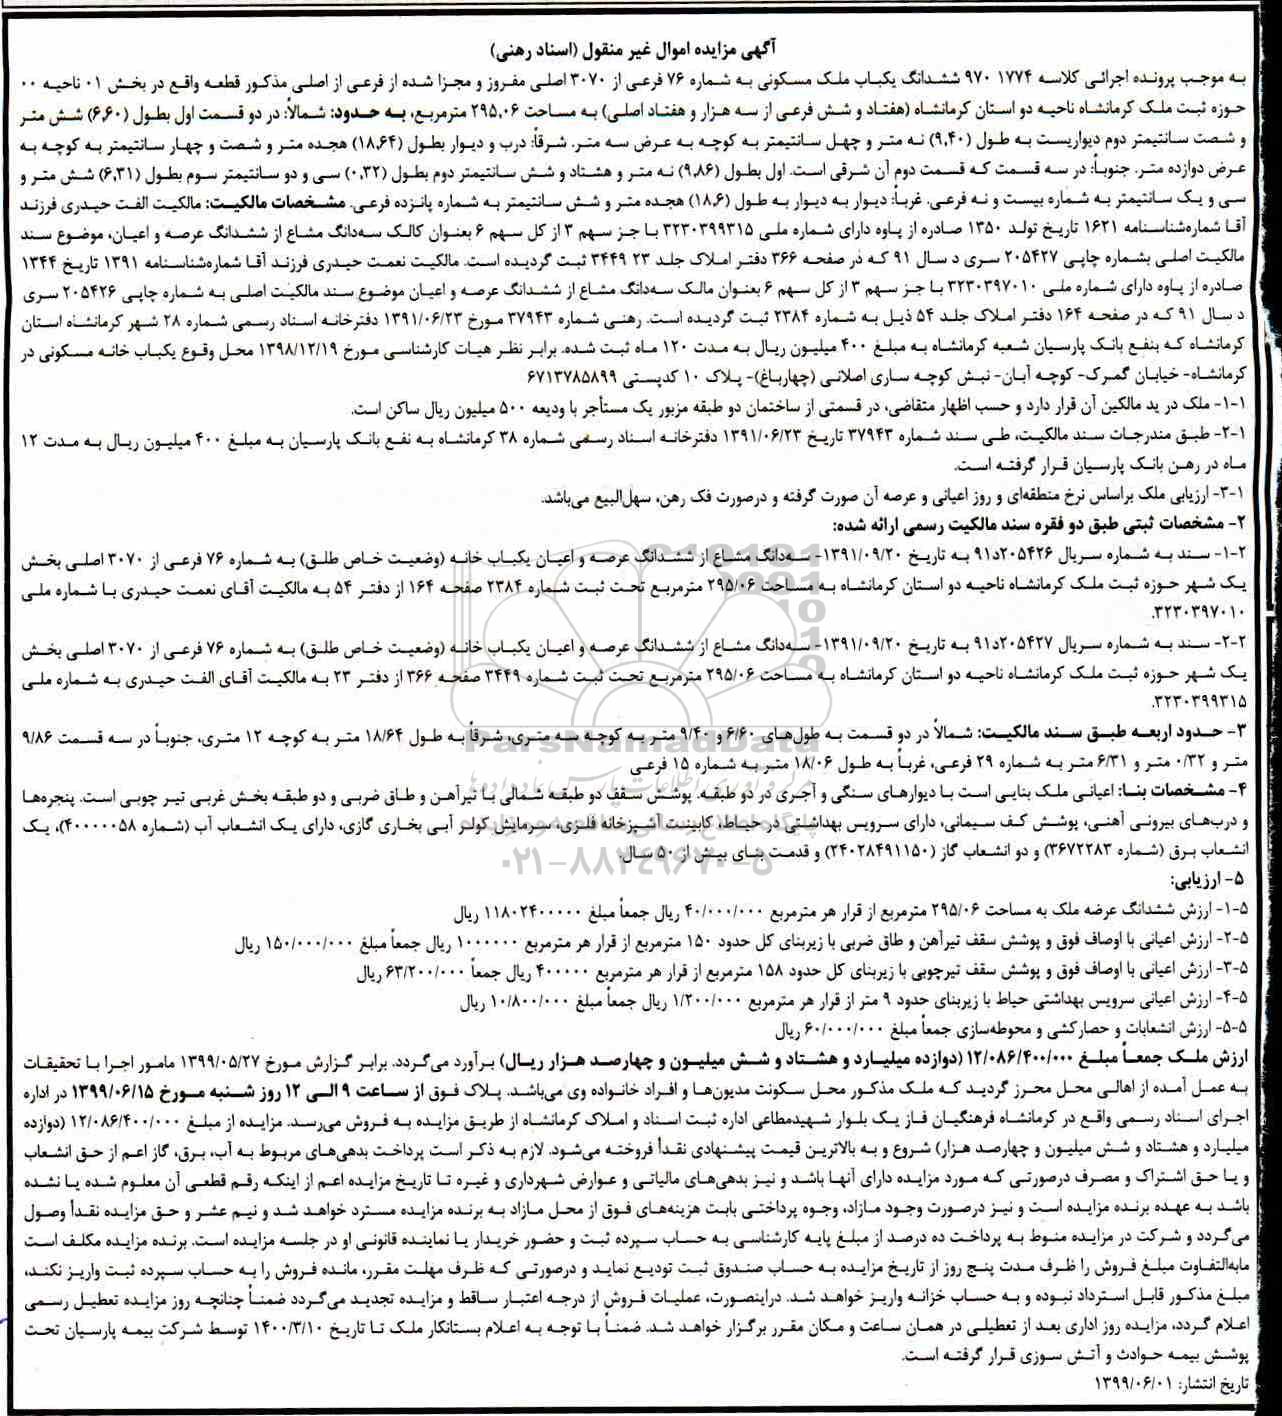 آگهی مزایده اموال غیر منقول (اسناد رهنی)
به موجب پرونده اجرائی کلاسه ۱۷۷۴ ۹۷۰ ششدانگ یکباب ملک مسکونی به شماره ۷۶ فرعی از ۳۰۷۰ اصلی مفروز و مجزا شده از فرعی از اصلی مذکور قطعه واقع در بخش ۰۱ ناحیه ۰۰
حوزه ثبت ملک کرمانشاه ناحیه دو استان کرمانشاه (هفتاد و شش فرعی از سه هزار و هفتاد اصلی) به مساحت ۲۹۵,۰۶ مترمربع، به حدود: شمالاً: در دو قسمت اول بطول (۶,۶۰) شش متر
و شصت سانتیمتر دوم دیواریست به طول (۹,۴۰) نه متر و چهل سانتیمتر به کوچه به عرض سه متر. شرقاً: درب و دیوار بطول (۱۸,۶۴) هجده متر و شصت و چهار سانتیمتر به کوچه به
عرض دوازده متر. جنوباً: در سه قسمت که قسمت دوم آن شرقی است. اول بطول (۹,۸۶) نه متر و هشتاد و شش سانتیمتر دوم بطول (۰,۳۲) سی و دو سانتیمتر سوم بطول (۶,۳۱) شش متر و
سی و یک سانتیمتر به شماره بیست و نه فرعی. غرباً: دیوار به دیوار به طول (۱۸,۶) هجده متر و شش سانتیمتر به شماره پانزده فرعی. مشخصات مالکیت: مالکیت الفت حیدری فرزند
آقا شماره‌شناسنامه ۱۶۲۱ تاریخ تولد ۱۳۵۰ صادره از پاوه دارای شماره ملی ۳۲۳۰۳۹۹۳۱۵ با جز سهم ۳ از کل سهم ۶ بعنوان کالک سه‌دانگ مشاع از ششدانگ عرصه و اعیان، موضوع سند
مالکیت اصلی بشماره چاپی ۲۰۵۴۲۷ سری د سال ۹۱ که در صفحه ۳۶۶ دفتر املاک جلد ۲۳ ۳۴۴۹ ثبت گردیده است. مالکیت نعمت حیدری فرزند آقا شماره‌شناسنامه ۱۳۹۱ تاریخ ۱۳۴۴
صادره از پاوه دارای شماره ملی ۳۲۳۰۳۹۷۰۱۰ با جز سهم ۳ از کل سهم ۶ بعنوان مالک سه‌دانگ مشاع از ششدانگ عرصه و اعیان موضوع سند مالکیت اصلی به شماره چاپی ۲۰۵۴۲۶ سری
د سال ۹۱ که در صفحه ۱۶۴ دفتر املاک جلد ۵۴ ذیل به شماره ۲۳۸۴ ثبت گردیده است. رهنی شماره ۳۷۹۴۳ مورخ ۱۳۹۱/۰۶/۲۳ دفترخانه اسناد رسمی شماره ۲۸ شهر کرمانشاه استان
کرمانشاه که بنفع بانک پارسیان شعبه کرمانشاه به مبلغ ۴۰۰ میلیون ریال به مدت ۱۲۰ ماه ثبت شده. برابر نظر هیات کارشناسی مورخ ۱۳۹۸/۱۲/۱۹ محل وقوع یکباب خانه مسکونی در
کرمانشاه- خیابان گمرک- کوچه آبان- نبش کوچه ساری اصلانی (چهارباغ)- پلاک ۱۰ کدپستی ۶۷۱۳۷۸۵۸۹۹
۱-۱- ملک در ید مالکین آن قرار دارد و حسب اظهار متقاضی، در قسمتی از ساختمان دو طبقه مزبور یک مستأجر با ودیعه ۵۰۰ میلیون ریال ساکن است.
۲-۱- طبق مندرجات سند مالکیت، طی سند شماره ۳۷۹۴۳ تاریخ ۱۳۹۱/۰۶/۲۳ دفترخانه اسناد رسمی شماره ۳۸ کرمانشاه به نفع بانک پارسیان به مبلغ ۴۰۰ میلیون ریال به مدت ۱۲
ماه در رهن بانک پارسیان قرار گرفته است.
۳-۱- ارزیابی ملک براساس نرخ منطقه‌ای و روز اعیانی و عرصه آن صورت گرفته و درصورت فک رهن، سهل‌البیع می‌باشد.
۲- مشخصات ثبتی طبق دو فقره سند مالکیت رسمی ارائه شده:
۱-۲- سند به شماره سریال ۲۰۵۴۲۶د۹۱ به تاریخ ۱۳۹۱/۰۹/۲۰- سه‌دانگ مشاع از ششدانگ عرصه و اعیان یکباب خانه (وضعیت خاص طلق) به شماره ۷۶ فرعی از ۳۰۷۰ اصلی بخش
یک شهر حوزه ثبت ملک کرمانشاه ناحیه دو استان کرمانشاه به مساحت ۲۹۵/۰۶ مترمربع تحت ثبت شماره ۲۳۸۴ صفحه ۱۶۴ از دفتر ۵۴ به مالکیت آقای نعمت حیدری با شماره ملی
۳۲۳۰۳۹۷۰۱۰.
۲-۲- سند به شماره سریال ۲۰۵۴۲۷د۹۱ به تاریخ ۱۳۹۱/۰۹/۲۰- سه‌دانگ مشاع از ششدانگ عرصه و اعیان یکباب خانه (وضعیت خاص طلق) به شماره ۷۶ فرعی از ۳۰۷۰ اصلی بخش
یک شهر حوزه ثبت ملک کرمانشاه ناحیه دو استان کرمانشاه به مساحت ۲۹۵/۰۶ مترمربع تحت ثبت شماره ۳۴۴۹ صفحه ۳۶۶ از دفتر ۲۳ به مالکیت آقای الفت حیدری به شماره ملی
۳۲۳۰۳۹۹۳۱۵.
۳- حدود اربعه طبق سند مالکیت: شمالاً در دو قسمت به طول‌های ۶/۶۰ و ۹/۴۰ متر به کوچه سه متری، شرقاً به طول ۱۸/۶۴ متر به کوچه ۱۲ متری، جنوباً در سه قسمت ۹/۸۶
متر و ۰/۳۲ متر و ۶/۳۱ متر به شماره ۲۹ فرعی، غرباً به طول ۱۸/۰۶ متر به شماره ۱۵ فرعی
ParsNamadData
۴- مشخصات بنا: اعیانی ملک بنایی است با دیوارهای سنگی و آجری در دو طبقه. پوشش سقف دو طبقه شمالی با تیرآهن و طاق ضربی و دو طبقه بخش غربی تیر چوبی است. پنجره‌ها
و درب‌های بیرونی آهنی، پوشش کف سیمانی، دارای سرویس بهداشتی در حیاط، کابینت آشپزخانه فلزی، سرمایش کولر آبی بخاری گازی، دارای یک انشعاب آب (شماره ۴۰۰۰۰۰۵۸)، یک
انشعاب برق (شماره ۳۶۷۲۲۸۳) و دو انشعاب گاز (۲۴۰۲۸۴۹۱۱۵۰) و قدمت بنای بیش از ۵۰ سال.
۰۲۱-۸۸۳۴۹۶۷۰-۵
۵- ارزیابی:
۱-۵- ارزش ششدانگ عرضه ملک به مساحت ۲۹۵/۰۶ مترمربع از قرار هر مترمربع ۴۰/۰۰۰/۰۰۰ ریال جمعاً مبلغ ۱۱۸۰۲۴۰۰۰۰۰ ریال
۲-۵- ارزش اعیانی با اوصاف فوق و پوشش سقف تیرآهن و طاق ضربی با زیربنای کل حدود ۱۵۰ مترمربع از قرار هر مترمربع ۱۰۰۰۰۰۰ ریال جمعاً مبلغ ۱۵۰/۰۰۰/۰۰۰ ریال
۳-۵- ارزش اعیانی با اوصاف فوق و پوشش سقف تیرچوبی با زیربنای کل حدود ۱۵۸ مترمربع از قرار هر مترمربع ۴۰۰۰۰۰ ریال جمعاً ۶۳/۲۰۰/۰۰۰ ریال
۴-۵- ارزش اعیانی سرویس بهداشتی حیاط با زیربنای حدود ۹ متر از قرار هر مترمربع ۱/۲۰۰/۰۰۰ ریال جمعاً مبلغ ۱۰/۸۰۰/۰۰۰ ریال
۵-۵- ارزش انشعابات و حصارکشی و محوطه‌سازی جمعاً مبلغ ۶۰/۰۰۰/۰۰۰ ریال
ارزش ملک جمعاً مبلغ ۱۲/۰۸۶/۴۰۰/۰۰۰ (دوازده میلیارد و هشتاد و شش میلیون و چهارصد هزار ریال) برآورد می‌گردد. برابر گزارش مورخ ۱۳۹۹/۰۵/۲۷ مامور اجرا با تحقیقات
به عمل آمده از اهالی محل محرز گردید که ملک مذکور محل سکونت مدیون‌ها و افراد خانواده وی می‌باشد. پلاک فوق از ساعت ۹ الی ۱۲ روز شنبه مورخ ۱۳۹۹/۰۶/۱۵ در اداره
اجرای اسناد رسمی واقع در کرمانشاه فرهنگیان فاز یک بلوار شهیدمطاعی اداره ثبت اسناد و املاک کرمانشاه از طریق مزایده به فروش می‌رسد. مزایده از مبلغ ۱۲/۰۸۶/۴۰۰/۰۰۰ (دوازده
میلیارد و هشتاد و شش میلیون و چهارصد هزار) شروع و به بالاترین قیمت پیشنهادی نقداً فروخته می‌شود. لازم به ذکر است پرداخت بدهی‌های مربوط به آب، برق، گاز اعم از حق انشعاب
و یا حق اشتراک و مصرف درصورتی که مورد مزایده دارای آنها باشد و نیز بدهی‌های مالیاتی و عوارض شهرداری و غیره تا تاریخ مزایده اعم از اینکه رقم قطعی آن معلوم شده یا نشده
باشد به عهده برنده مزایده است و نیز درصورت وجود مازاد، وجوه پرداختی بابت هزینه‌های فوق از محل مازاد به برنده مزایده مسترد خواهد شد و نیم عشر و حق مزایده نقداً وصول
می‌گردد و شرکت در مزایده منوط به پرداخت ده درصد از مبلغ پایه کارشناسی به حساب سپرده ثبت و حضور خریدار یا نماینده قانونی او در جلسه مزایده است. برنده مزایده مکلف است
مابه‌التفاوت مبلغ فروش را ظرف مدت پنج روز از تاریخ مزایده به حساب صندوق ثبت تودیع نماید و درصورتی که ظرف مهلت مقرر، مانده فروش را به حساب سپرده ثبت واریز نکند،
مبلغ مذکور قابل استرداد نبوده و به حساب خزانه واریز خواهد شد. دراینصورت، عملیات فروش از درجه اعتبار ساقط و مزایده تجدید می‌گردد ضمناً چنانچه روز مزایده تعطیل رسمی
اعلام گردد، مزایده روز اداری بعد از تعطیلی در همان ساعت و مکان مقرر برگزار خواهد شد. ضمناً با توجه به اعلام بستانکار ملک تا تاریخ ۱۴۰۰/۳/۱۰ توسط شرکت بیمه پارسیان تحت
پوشش بیمه حوادث و آتش سوزی قرار گرفته است.
تاریخ انتشار: ۱۳۹۹/۰۶/۰۱